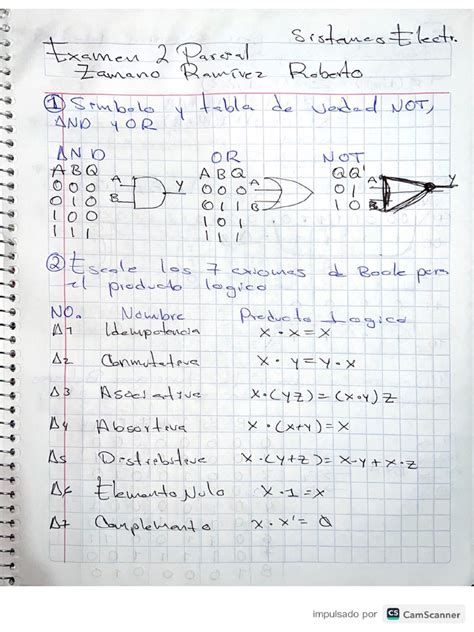 Sistemas Electr.
Examen 2 Parcial
Zamano Ramírez Roberto
① Simbolo y tabla de verdad NOT,
AND y OR
AND OR NOT
A B Q A B Q Q Q'
0 0 0 A B Y 0 0 0 A B 0 1 A B Y
0 1 0 0 1 1 1 0
1 0 0 1 0 1
1 1 1 1 1 1
② Escribe los 7 axiomas de Boole para
el producto logico
NO. Nombre Producto Logico
A1 Idempotencia X · X = X
A2 Conmutativa X · Y = Y · X
A3 Asociativa X · (YZ) = (X·Y) Z
A4 Absortiva X · (X+Y) = X
A5 Distributiva X · (Y+Z) = X·Y + X·Z
A6 Elemento Nulo X · 1 = X
A7 Complemento X · X' = 0
impulsado por CS CamScanner